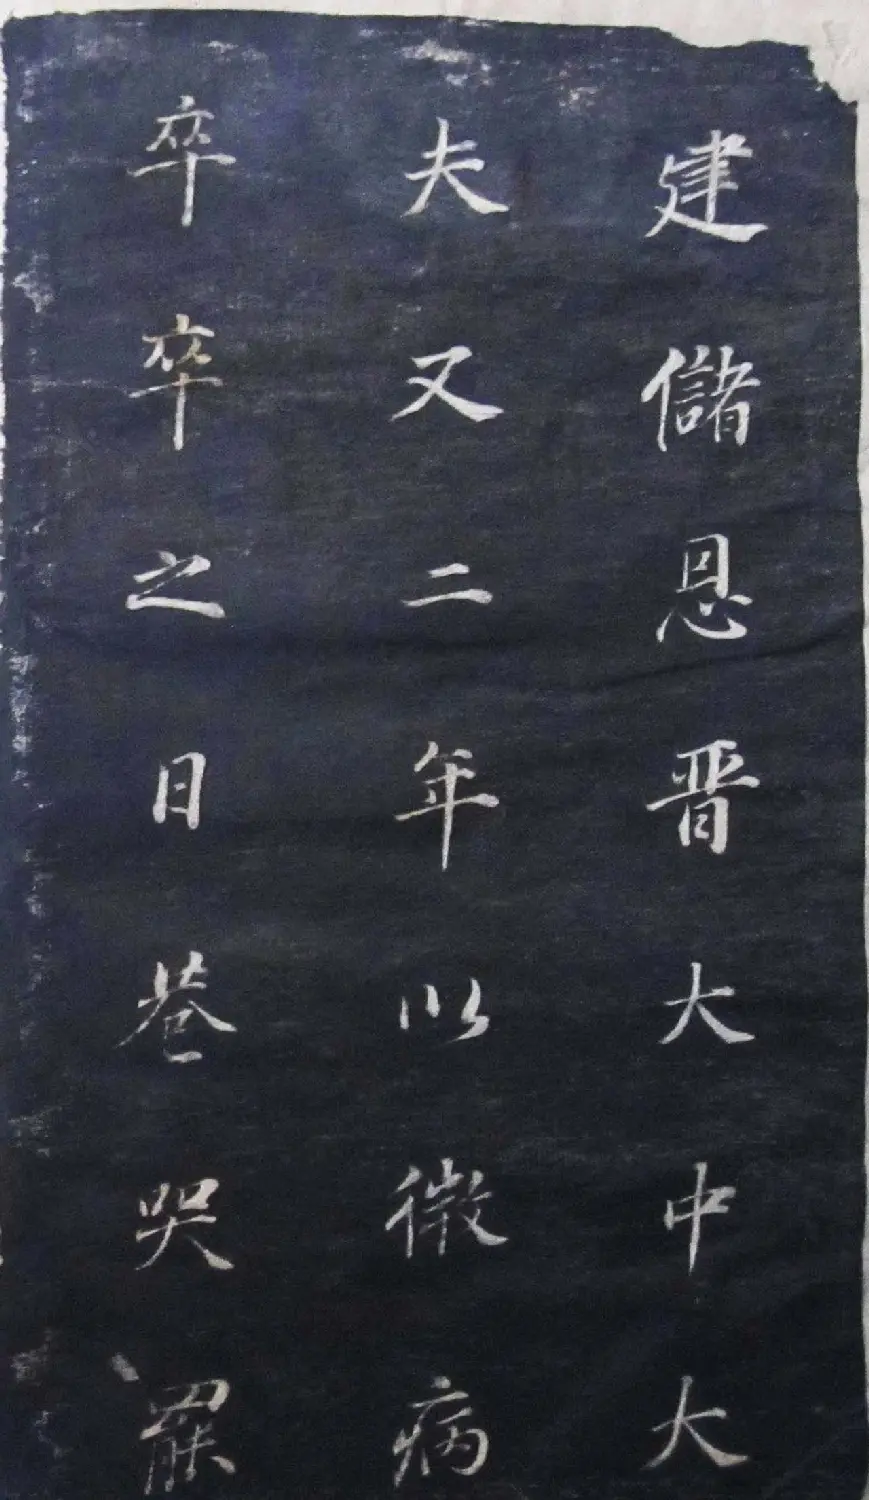 建儲恩晋大中大
夫又二年以微病
卒卒之日巷哭罷